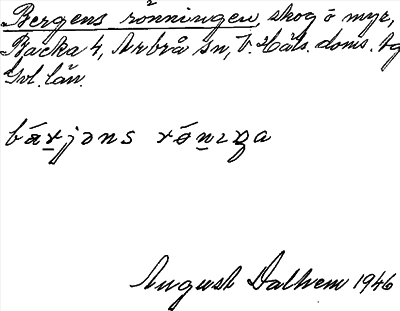 Bergens rönningen, skog o myr,
Backa 4, Arbrå sn, V. Häls. doms. tg
Gvl. län.
bä́rjəns rö́nıŋa
August Dalhem 1946